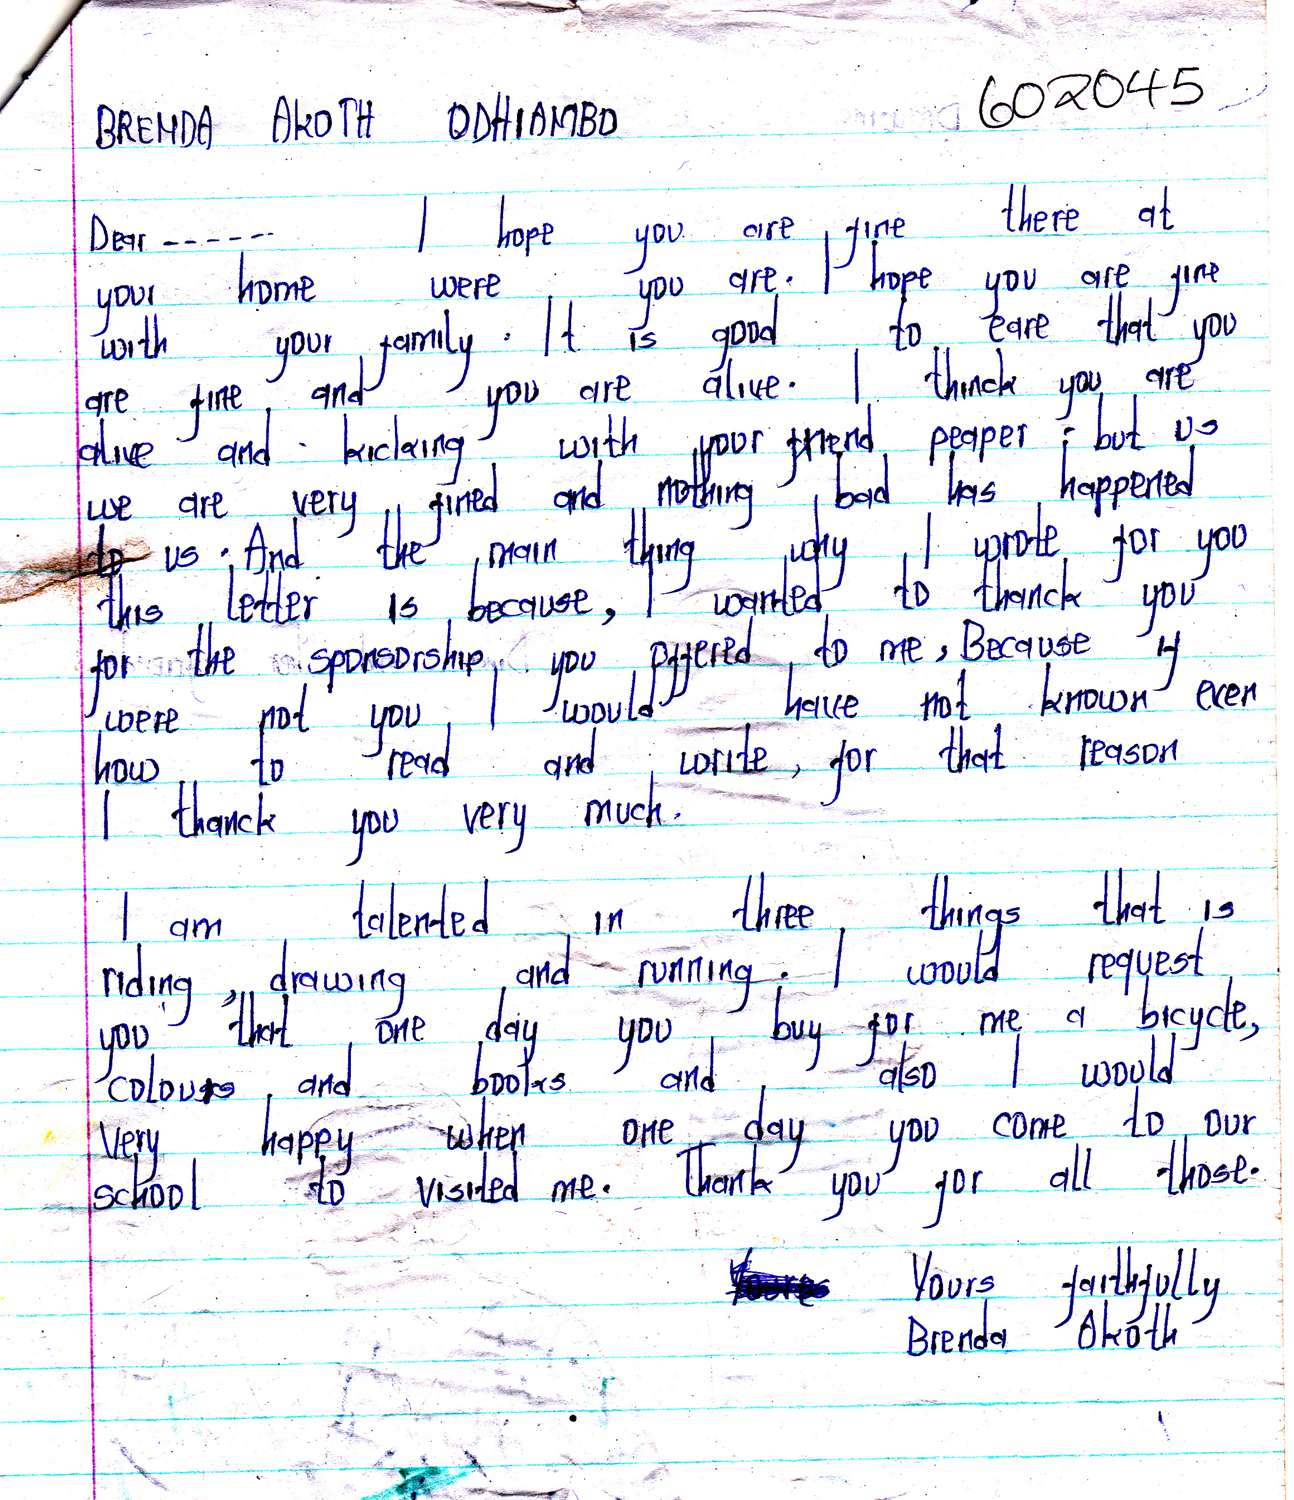 602045
BRENDA AKOTH ODHIAMBO
Dear ------ I hope you are fine there at
your home were you are. I hope you are fine
with your family. It is good to eare that you
are fine and you are alive. I thinck you are
alive and kicking with your friend peaper; but us
we are very fined and nothing bad has happened
to us. And the main thing why I wrote for you
this letter is because, I wanted to thanck you
for the sponsorship you offered to me, Because if
were not you I would have not known even
how to read and write, for that reason
I thanck you very much.
I am talented in three things that is
riding, drawing and running. I would request
you that one day you buy for me a bicycle,
colours and books and also I would
very happy when one day you come to our
school to visited me. Thank you for all those.
Yours faithfully
Brenda Akoth